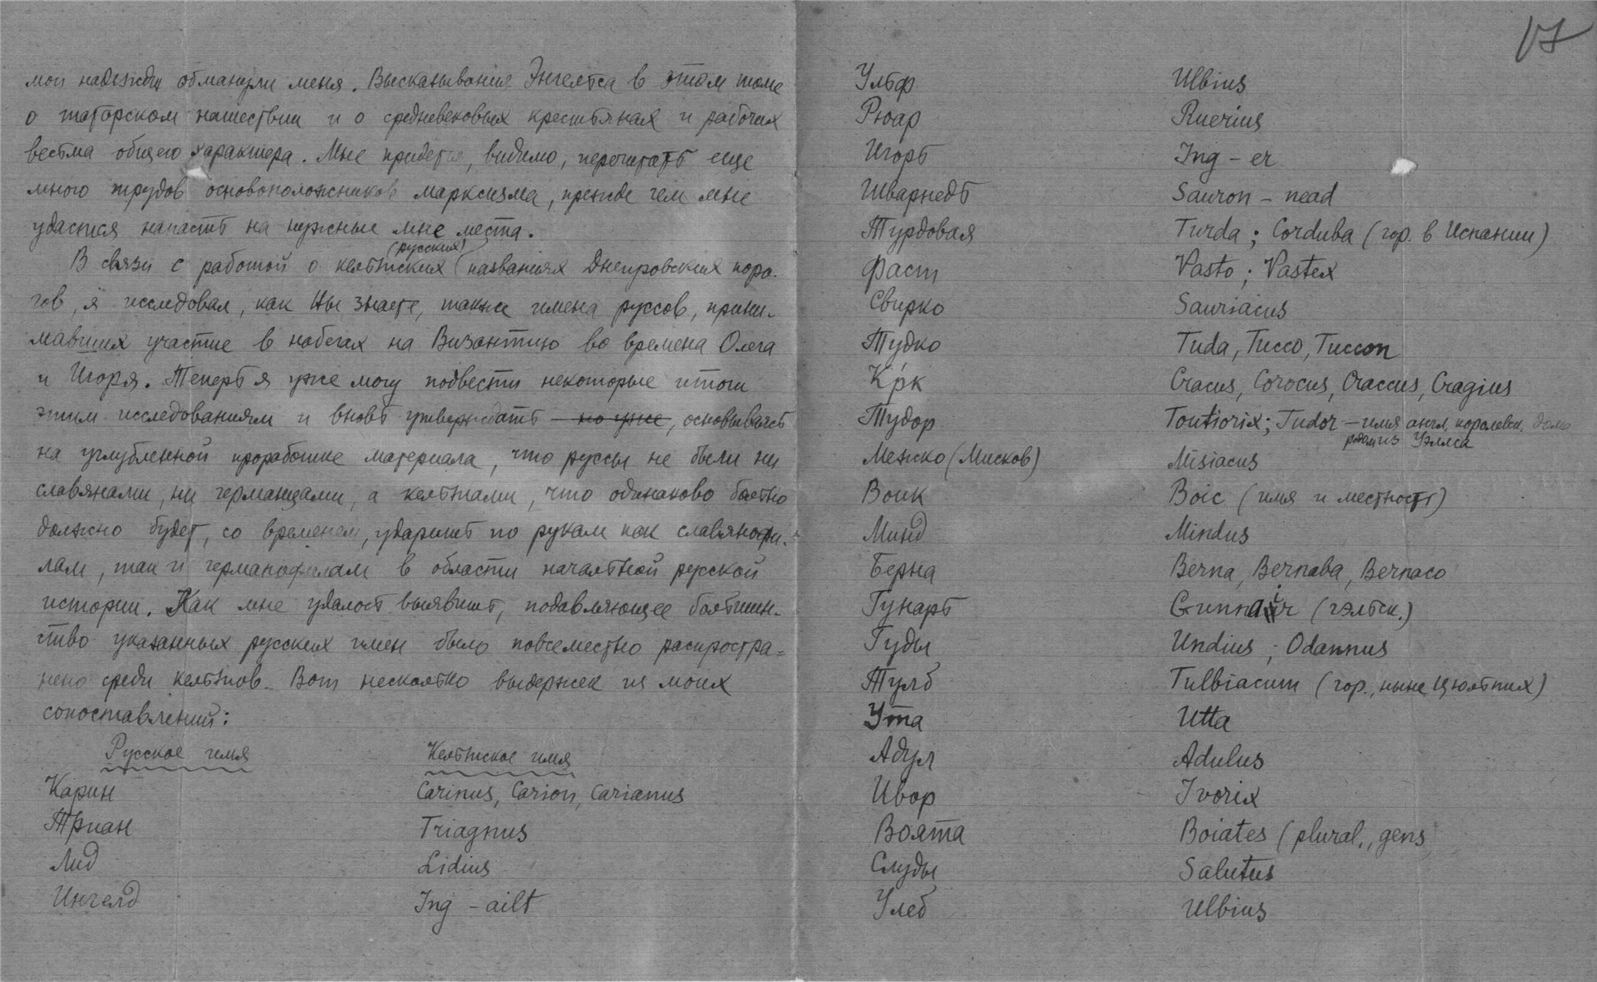 мои надежды обманули меня. Высказывание Энгельса в этом томе
о татарском нашествии и о средневековых крестьянах и рабочих
весьма общего характера. Мне придется, видимо, перечитать еще
много трудов основоположников марксизма, прежде чем мне
удастся напасть на нужные мне места.
В связи с работой о кельтских (русских) названиях Днепровских поро-
гов, я исследовал, как Вы знаете, также имена руссов, прини-
мавших участие в набегах на Византию во времена Олега
и Игоря. Теперь я уже могу подвести некоторые итоги
этим исследованиям и вновь утверждать – но уже, основываясь
на углубленной проработке материала, что руссы не были ни
славянами, ни германцами, а кельтами, что одинаково больно
должно будет, со временем, ударить по рукам как славянофи-
лам, так и германофилам в области начальной русской
истории. Как мне удалось выявить, подавляющее большин-
ство указанных русских имен было повсеместно распростра-
нено среди кельтов. Вот несколько выдержек из моих
сопоставлений:
Русское имя Кельтское имя
Карин Carinus, Carion, Carianus
Труан Triagnus
Лид Lidius
Ингелд Ing – ailt
17
Ульф Ulbius
Рюар Ruerius
Игорь Ing – er
Шварнедь Sauron – nead
Турдовая Turda; Corduba (гор. в Испании)
Фаст Vasto; Vastex
Свирко Sauriacus
Тудко Tuda, Tucco, Tuccon
Кʹрк Cracus, Corocus, Craccus, Cragius
Тудор Toutiorix; Tudor – имя англ. королевск. дома
родом из Уэллса
Межко (Мисков) Misiacus
Воик Boic (имя и местность)
Минд Mindus
Берна Berna, Bernaba, Bernaco
Гунарь Gunnair (гэльск.)
Гуды Undius; Odannus
Тулб Tulbiacum (гор., ныне Цюльпих)
Ута Utta
Адул Adulus
Ивор Ivorix
Воята Boiates (plural., gens
Слуды Salutus
Улеб Ulbius